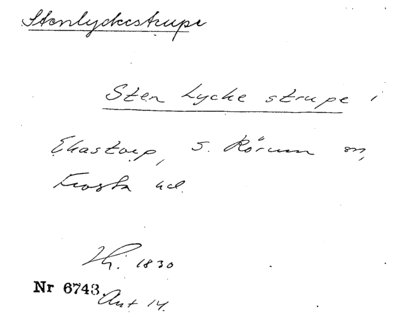 Stenlyckestrupe
Sten Lycke strupe i
Ekastorp, S. Rörum sn,
Frosta hd.
Lh. 1830
Nr 6743
Ant 14.